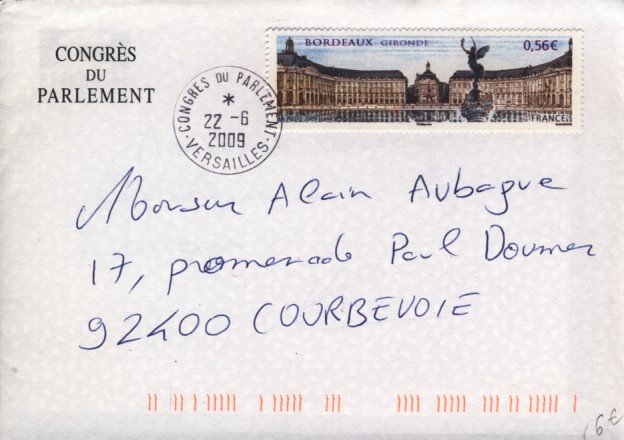 CONGRÈS
DU
PARLEMENT
CONGRES DU PARLEMENT
*
22 -6
2009
- VERSAILLES -
BORDEAUX GIRONDE
0,56€
FRANCE
Monsieur Alain Aubague
17, promenade Paul Doumer
92400 COURBEVOIE
6€